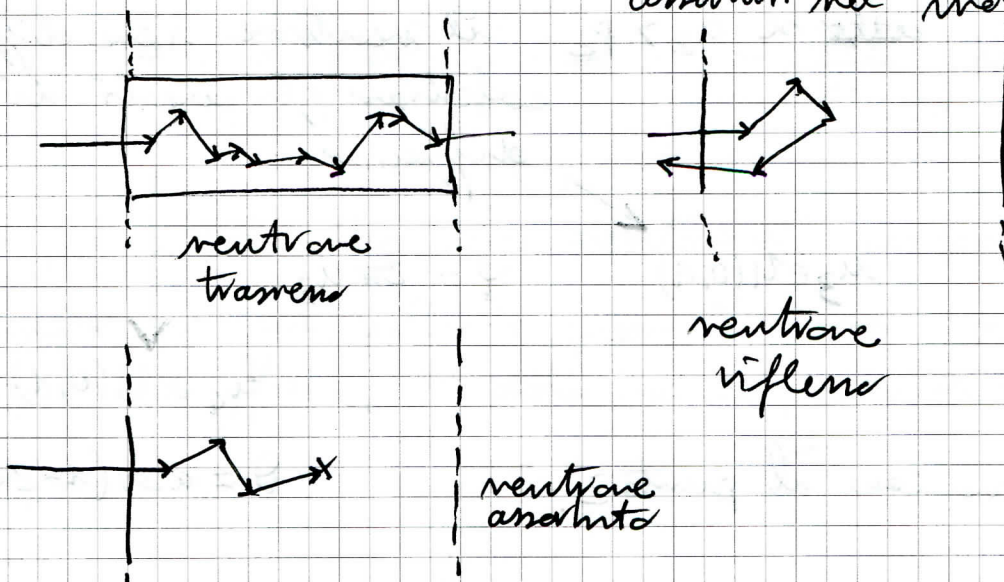 neutrone
trasmesso
neutrone
riflesso
neutrone
assorbito